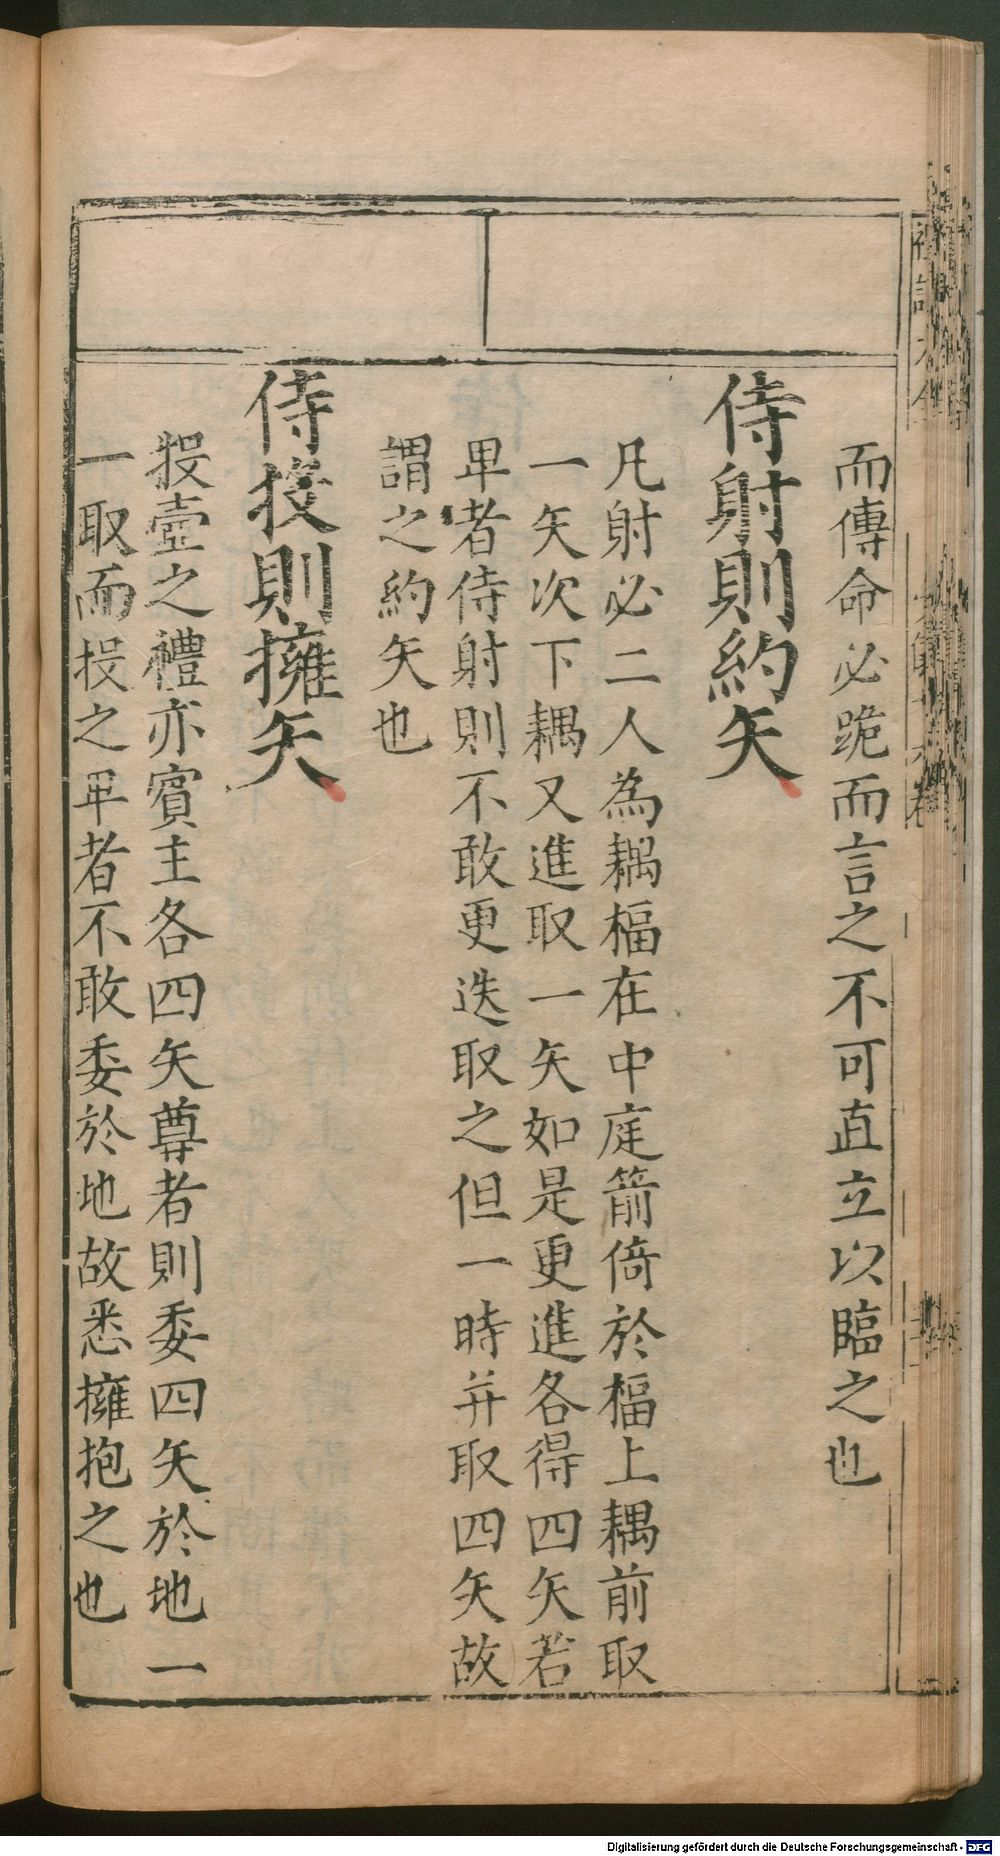 而傳命必跪而言之不可直立以臨之也
侍射則約矢
凡射必二人為耦楅在中庭箭倚於楅上耦前取
一矢次下耦又進取一矢如是更進各得四矢若
卑者侍射則不敢更迭取之但一時并取四矢故
謂之約矢也
侍投則擁矢
投壼之禮亦賓主各四矢尊者則委四矢於地一
一取而投之卑者不敢委於地故悉擁抱之也
Digitalisierung gefördert durch die Deutsche Forschungsgemeinschaft - DFG